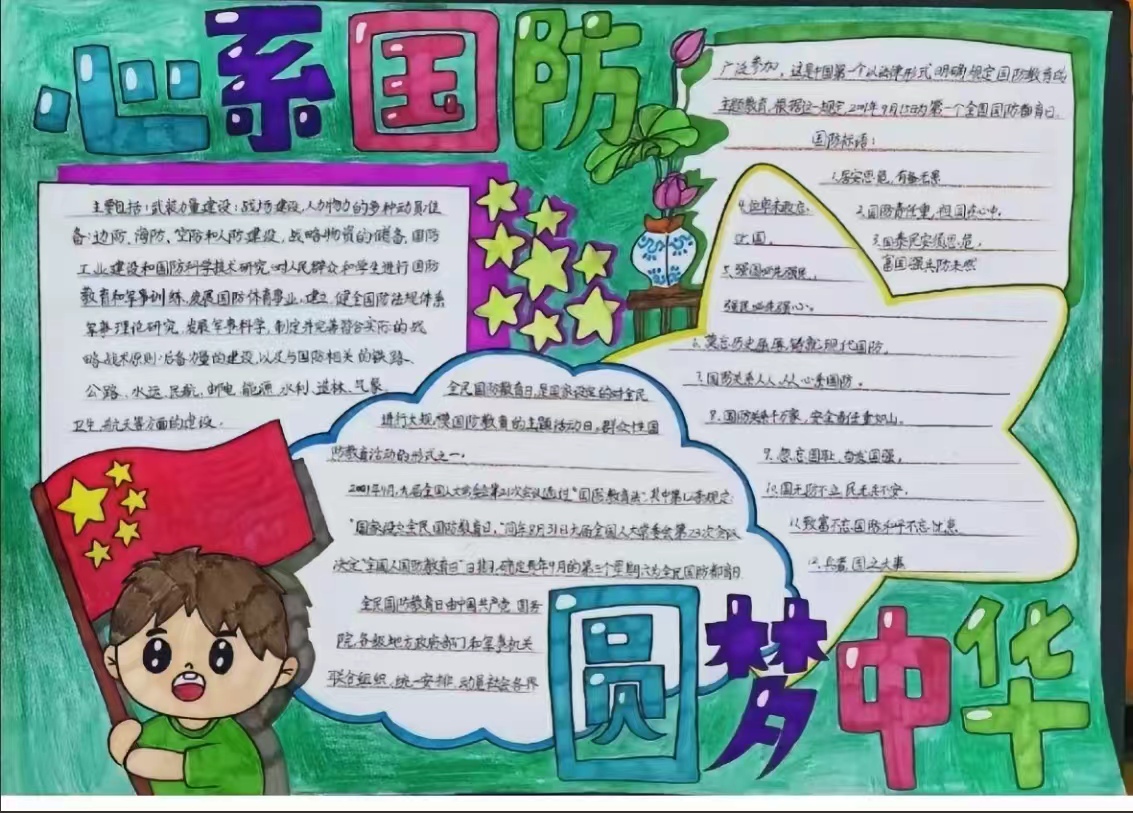 心系国防
主要包括:武装力量建设;战场建设,人力物力的多种动员准
备;边防、海防、空防和人防建设,战略物资的储备,国防
工业建设和国防科学技术研究,对人民群众和学生进行国防
教育和军事训练,发展国防体育事业,建立,健全国防法规体系
军事理论研究,发展军事科学,制定并完善符合实际的战
略战术原则;后备力量的建设,以及与国防相关的铁路、
公路、水运、民航、邮电、能源、水利、造林、气象、
卫生、航天等方面的建设。
全民国防教育日,是国家设定的对全民
进行大规模国防教育的主题活动日,群众性国
防教育活动的形式之一。
2001年4月,九届全国人大常委会第21次会议通过"国防教育法",其中第12条规定:
"国家设立全民国防教育日,"同年8月31日九届全国人大常委会第23次会议
决定"全国人国防教育日"日期,确定每年9月的第三个星期六为全民国防教育日
全民国防教育日由中国共产党 国务
院,各级地方政府部门和军事机关
联合组织,统一安排,动员社会各界
广泛参加,这是中国第一个以法律形式明确规定国防教育的
主题教育,根据这一规定,2001年9月15日为第一个全国国防教育日,
国防标语:
1.居安思危,有备无患
2.国防责任重,祖国在心中。
3.国泰民安须思危,
富国强兵防未然
4.位卑未敢忘
忧国。
5.强国必先强民,
强民必先强心。
6.莫忘历史屈辱,铸就现代国防。
7.国防关系人人,人人心系国防。
8.国防关系千万家,安全责任重如山。
9.勿忘国耻,奋发国强。
10.国无防不立,民无兵不安。
以致富不忘国防,和平不忘忧患
12.兵者,国之大事
圆梦中华